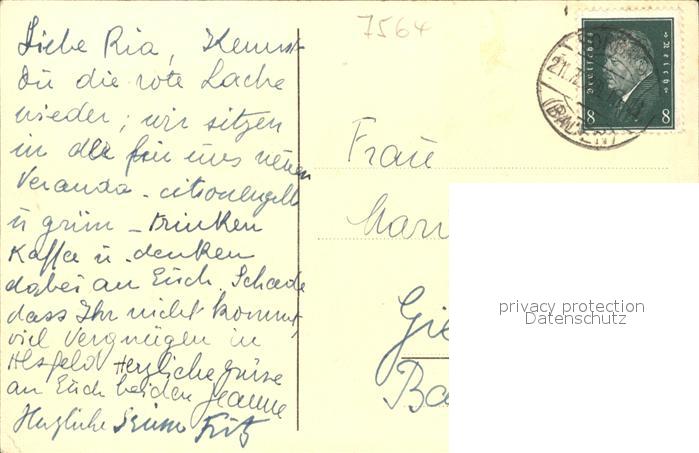 7564
Liebe Ria, Kennst
Du die rote Lache
wieder; wir sitzen
in der für uns neuen
Veranda - citronengelb
u grün - trinken
Kaffee u. denken
dabei an Euch. Schade
dass Ihr nicht kommt,
viel Vergnügen in
Alsfeld Herzliche Grüsse
an Euch beiden Jeanne
Herzliche Fritz
Deutsches Reich
8 8
(BADEN)
Frau
Mar
Gie
Ba
privacy protection
Datenschutz